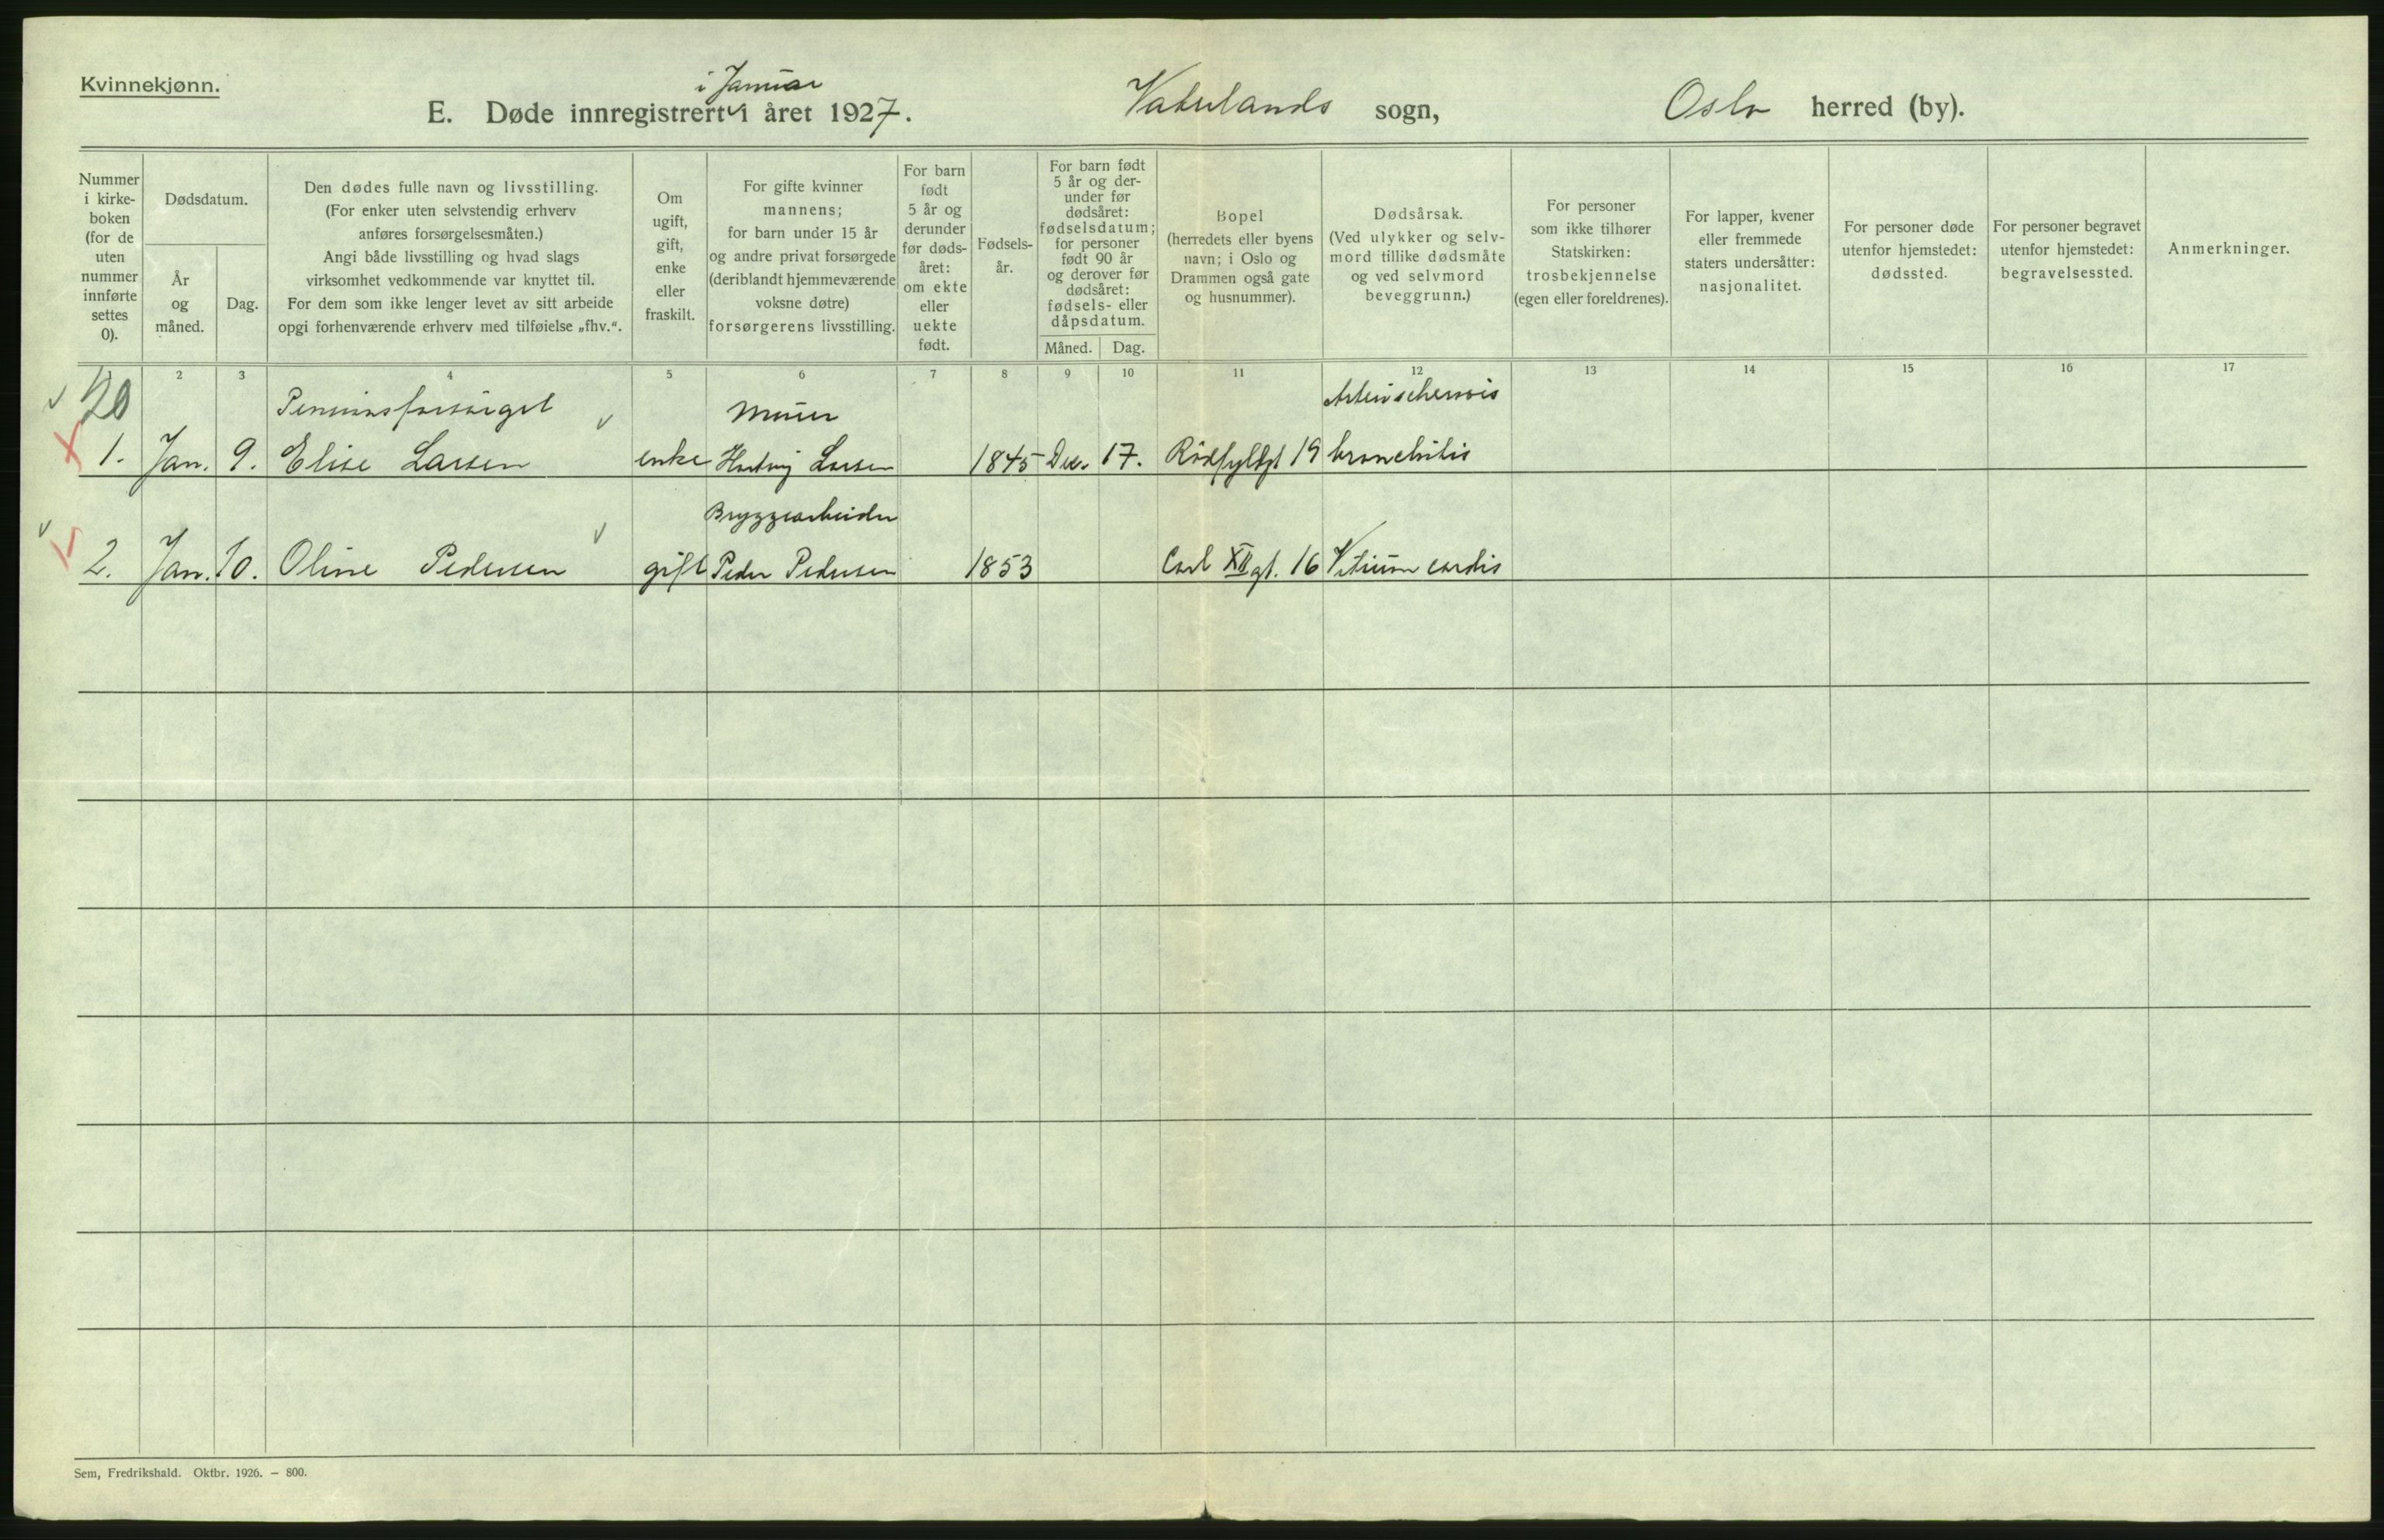 Kvinnekjønn.
i Januar
E. Døde innregistrert i året 1927.
Vaterlands sogn,
Oslo herred (by).
Nummer i kirke-boken (for de uten nummer innførte settes 0).
Dødsdatum.
År og måned.
Dag.
Den dødes fulle navn og livsstilling.
(For enker uten selvstendig erhverv
anføres forsørgelsesmåten.)
Angi både livsstilling og hvad slags
virksomhet vedkommende var knyttet til.
For dem som ikke lenger levet av sitt arbeide
opgi forhenværende erhverv med tilføielse „fhv.“.
Om
ugift,
gift,
enke
eller
fraskilt.
For gifte kvinner
mannens;
for barn under 15 år
og andre privat forsørgede
(deriblandt hjemmeværende
voksne døtre)
forsørgerens livsstilling.
For barn
født
5 år og
derunder
før døds-
året:
om ekte
eller
uekte
født.
Fødsels-
år.
For barn født
5 år og der-
under før
dødsåret:
fødselsdatum;
for personer
født 90 år
og derover før
dødsåret:
fødsels- eller
dåpsdatum.
Måned.
Dag.
Bopel
(herredets eller byens
navn; i Oslo og
Drammen også gate
og husnummer).
Dødsårsak.
(Ved ulykker og selv-
mord tillike dødsmåte
og ved selvmord
beveggrunn.)
For personer
som ikke tilhører
Statskirken:
trosbekjennelse
(egen eller foreldrenes).
For lapper, kvener
eller fremmede
staters undersåtter:
nasjonalitet.
For personer døde
utenfor hjemstedet:
dødssted.
For personer begravet
utenfor hjemstedet:
begravelsessted.
Anmerkninger.
2 3 4 5 6 7 8 9 10 11 12 13 14 15 16 17
20
Pensionsforsørget
Murer
Arterioscherosis
1. Jan. 9. Elise Larsen enke Hartvig Larsen 1845 Dec. 17. Rödfyldgt 19 bronchitis
Bryggearbeider
2. Jan. 10. Oline Pedersen gift Peder Pedersen 1853 Carl XII gt. 16 Vitium cordis
Sem, Fredrikshald. Oktbr. 1926. — 800.